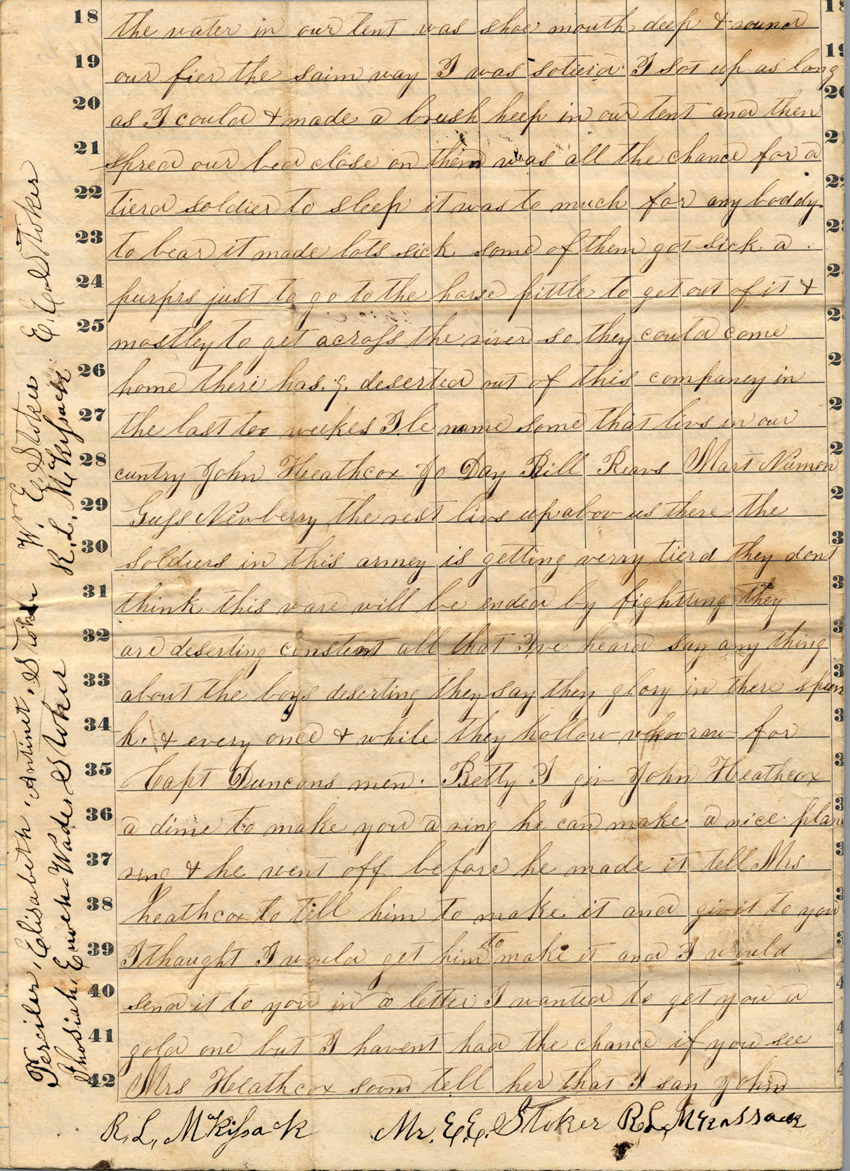 18 the water in our tent was shoe mouth deep & round
19 our fier the saim way I was soticia I sot up as long
20 as I could & made a brush heep in our tent and then
21 spred our bed close on them was all the chance for a
22 tierd soldier to sleep it was to much for any boddy
23 to bear it made lots sick some of them got sick a
24 purprs just to go to the horse pittle to get out of it &
25 mostley to get across the river so they could come
26 home theri has 9 deserted out of this companey in
27 the last too weekes I le name some that livs in our
28 cuntry John Heathcox Jo Day Bill Reavs Mart Numon
29 Guss Newberry the rest livs up abov us there the
30 soldiers in this armey is getting verry tierd they dont
31 think this ware will be ended by fightting they
32 are deserting constent all that I've heard say any thing
33 about the boys deserting they say they glory in there spun
34 k. & every once & while they hollow whooraw for
35 Capt Duncans men. Betty I giv John Heathcox
36 a dime to make you a ring he can make a nice plane
37 ring & he went off before he made it tell Mrs
38 heathcox to till him to make it and giv it to you
39 I thought I would get him to make it and I would
40 send it to you in a letter I wanted to get you a
41 gold one but I havent had the chance if you see
42 Mrs Heathcox soon tell her that I say John
R. L, McKissack Mr. E. E. Stoker R. L,
Perciler, Elisabeth, Antinet, Stoker Wm E Stoker E. E. Stoker
Enoch Wade, Stoker R. L. McKissack